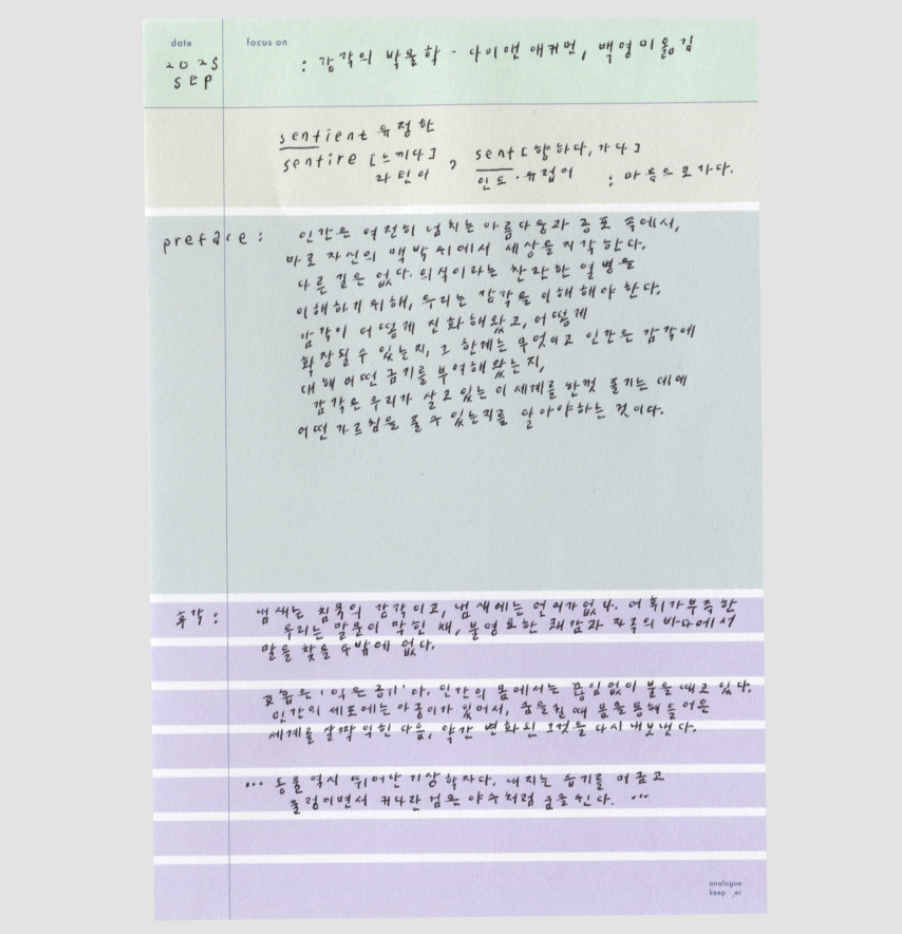 date
focus on
2025
SEP
: 감각의 박물학 - 다이앤 애커먼, 백영미 옮김
sentient 유정한
sentire [느끼다]
라틴어
, sent [향하다, 가다]
인도·유럽어 : 마음으로 가다.
preface :
인간은 여전히 넘치는 아름다움과 공포 속에서,
바로 자신의 맥박 위에서 세상을 지각한다.
다른 길은 없다. 의식이라는 찬란한 열병을
이해하기 위해, 우리는 감각을 이해해야 한다.
감각이 어떻게 진화해왔고, 어떻게
확장될 수 있는지, 그 한계는 무엇이고 인간은 감각에
대해 어떤 금기를 부여해 왔는지,
감각은 우리가 살고 있는 이 세계를 한껏 즐기는 데에
어떤 가르침을 줄 수 있는지를 알아야하는 것이다.
후각 :
냄새는 침묵의 감각이고, 냄새에는 언어가 없다. 어휘가 부족한
우리는 말문이 막힌 채, 불명료한 쾌감과 자극의 바다에서
말을 찾을 수밖에 없다.
호흡은 '익은 공기'다. 인간의 몸에서는 끊임없이 불을 때고 있다.
인간의 세포에는 아궁이가 있어서, 숨을 쉴 때 몸을 통해 들어온
세계를 살짝 익힌 다음, 약간 변화된 그것을 다시 내보낸다.
... 동물 역시 뛰어난 기상학자다. 대지는 습기를 머금고
출렁이면서 커다란 검은 야수처럼 숨을 쉰다. ...
analogue
keeper